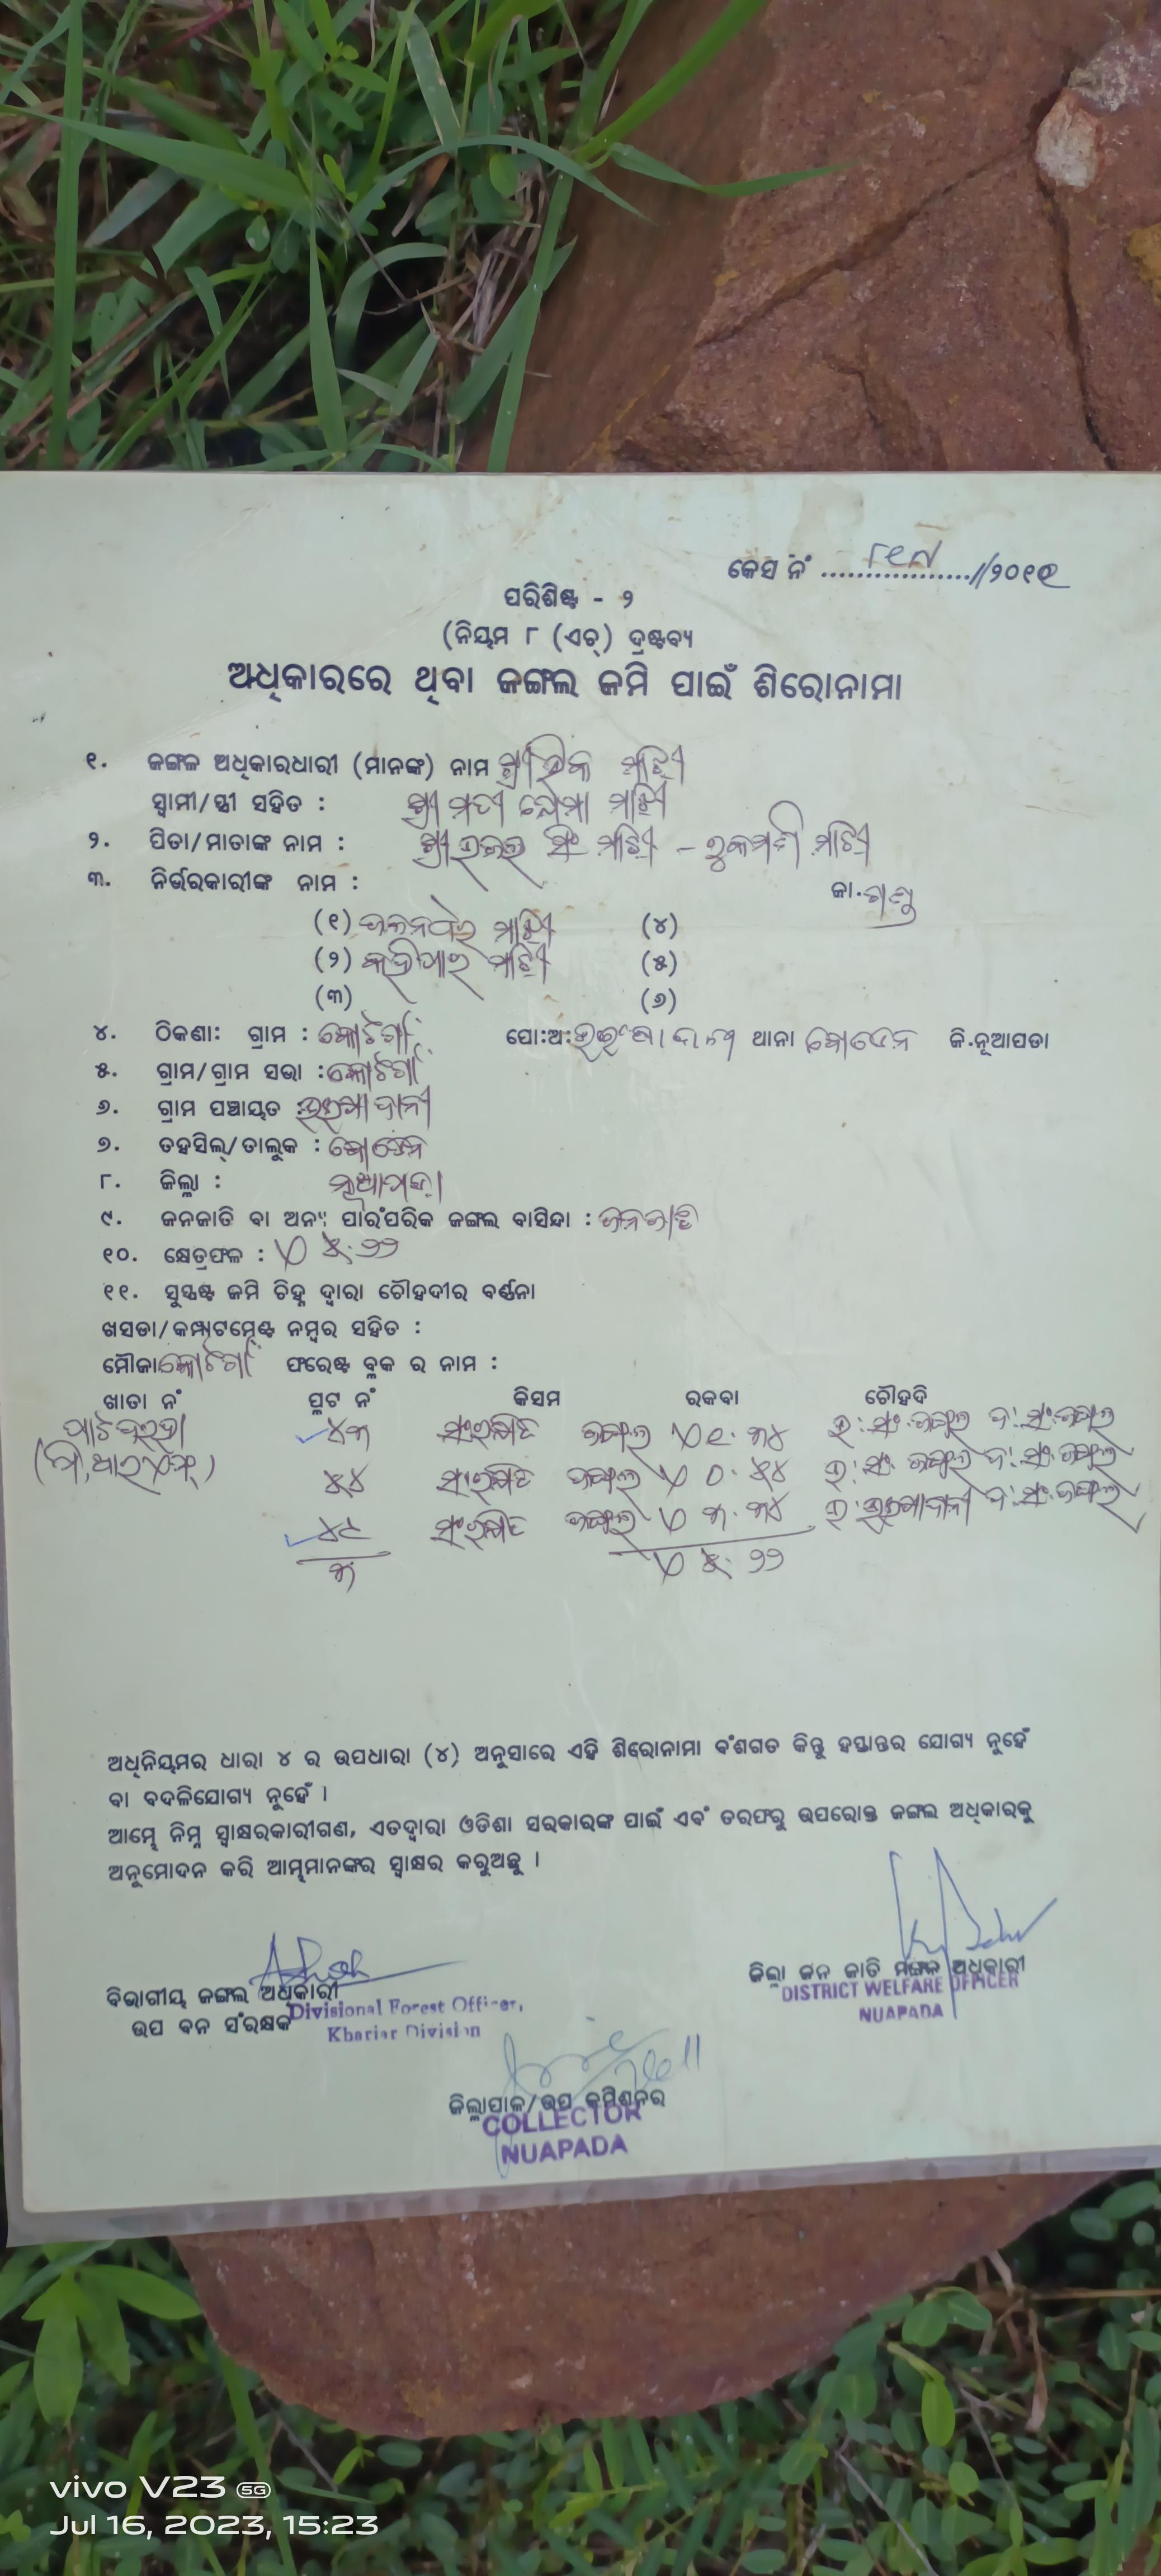 କେସ ନଂ ..................//୨୦୧୧
ପରିଶିଷ୍ଟ - ୨
(ନିୟମ ୮ (ଏଚ୍) ଦ୍ରଷ୍ଟବ୍ୟ
ଅଧିକାରରେ ଥିବା ଜଙ୍ଗଲ ଜମି ପାଇଁ ଶିରୋନାମା
୧. ଜଙ୍ଗଲ ଅଧିକାରଧାରୀ (ମାନଙ୍କ) ନାମ ଶ୍ରୀ ମାଝୀ
ସ୍ୱାମୀ/ସ୍ତ୍ରୀ ସହିତ : ଶ୍ରୀମତୀ ମାଝୀ
୨. ପିତା/ମାତାଙ୍କ ନାମ : ଶ୍ରୀ ସିଂ ମାଝୀ - ରୁକମଣୀ ମାଝୀ
୩. ନିର୍ଭରକାରୀଙ୍କ ନାମ : ଜା. ଗଣ୍ଡ
(୧) ମାଝୀ (୪)
(୨) ମାଝୀ (୫)
(୩) (୬)
୪. ଠିକଣା: ଗ୍ରାମ : କୋଟଗାଁ ପୋ:ଅ: ଥାନା ବୋଡେନ ଜି.ନୂଆପଡା
୫. ଗ୍ରାମ/ଗ୍ରାମ ସଭା : କୋଟଗାଁ
୬. ଗ୍ରାମ ପଞ୍ଚାୟତ :
୭. ତହସିଲ୍/ତାଲୁକ : ବୋଡେନ
୮. ଜିଲ୍ଲା : ନୂଆପଡ଼ା
୯. ଜନଜାତି ବା ଅନ୍ୟ ପାରଂପରିକ ଜଙ୍ଗଲ ବାସିନ୍ଦା : ଜନଜାତି
୧୦. କ୍ଷେତ୍ରଫଳ : ୫.୨୨
୧୧. ସୁସ୍ପଷ୍ଟ ଜମି ଚିହ୍ନ ଦ୍ୱାରା ଚୌହଦୀର ବର୍ଣ୍ଣନା
ଖସଡା/କମ୍ପାଟମେଣ୍ଟ ନମ୍ବର ସହିତ :
ମୌଜା କୋଟଗାଁ ଫରେଷ୍ଟ ବ୍ଲକ ର ନାମ :
ଖାତା ନଂ ପ୍ଲଟ ନଂ କିସମ ରକବା ଚୌହଦି
୪୩ ସଂରକ୍ଷିତ ଜଙ୍ଗଲ ୧.୩୪ ଉ: ସଂ. ଜଙ୍ଗଲ ଦ: ସଂ. ଜଙ୍ଗଲ
୪୪ ସଂରକ୍ଷିତ ଜଙ୍ଗଲ ୦.୫୪ ଉ: ସଂ. ଜଙ୍ଗଲ ଦ: ସଂ. ଜଙ୍ଗଲ
ସଂରକ୍ଷିତ ଜଙ୍ଗଲ ୩.୩୪ ଉ: ଦ: ସଂ. ଜଙ୍ଗଲ
୩ ୫.୨୨
ଅଧିନିୟମର ଧାରା ୪ ର ଉପଧାରା (୪) ଅନୁସାରେ ଏହି ଶିରୋନାମା ବଂଶଗତ କିନ୍ତୁ ହସ୍ତାନ୍ତର ଯୋଗ୍ୟ ନୁହେଁ
ବା ବଦଳିଯୋଗ୍ୟ ନୁହେଁ ।
ଆମ୍ଭେ ନିମ୍ନ ସ୍ୱାକ୍ଷରକାରୀଗଣ, ଏତଦ୍ୱାରା ଓଡିଶା ସରକାରଙ୍କ ପାଇଁ ଏବଂ ତରଫରୁ ଉପରୋକ୍ତ ଜଙ୍ଗଲ ଅଧିକାରକୁ
ଅନୁମୋଦନ କରି ଆମ୍ଭମାନଙ୍କର ସ୍ୱାକ୍ଷର କରୁଅଛୁ ।
ବିଭାଗୀୟ ଜଙ୍ଗଲ ଅଧିକାରୀ
ଉପ ବନ ସଂରକ୍ଷକ
Divisional Forest Officer,
Khariar Division
ଜିଲ୍ଲା ଜନ ଜାତି ମଙ୍ଗଳ ଅଧିକାରୀ
DISTRICT WELFARE OFFICER
NUAPADA
ଜିଲ୍ଲାପାଳ/ଉପ କମିଶନର
COLLECTOR
NUAPADA
vivo V23 5G
Jul 16, 2023, 15:23